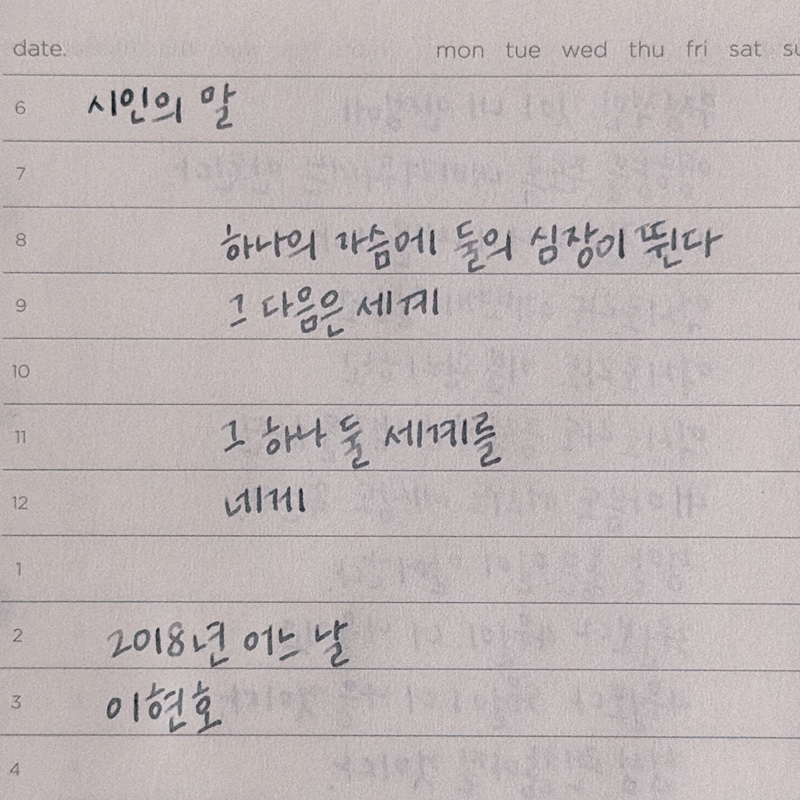 date. mon tue wed thu fri sat su
6 시인의 말
7
8 하나의 가슴에 둘의 심장이 뛴다
9 그 다음은 세계
10
11 그 하나 둘 세계를
12 네게
1
2 2018년 어느 날
3 이현호
4